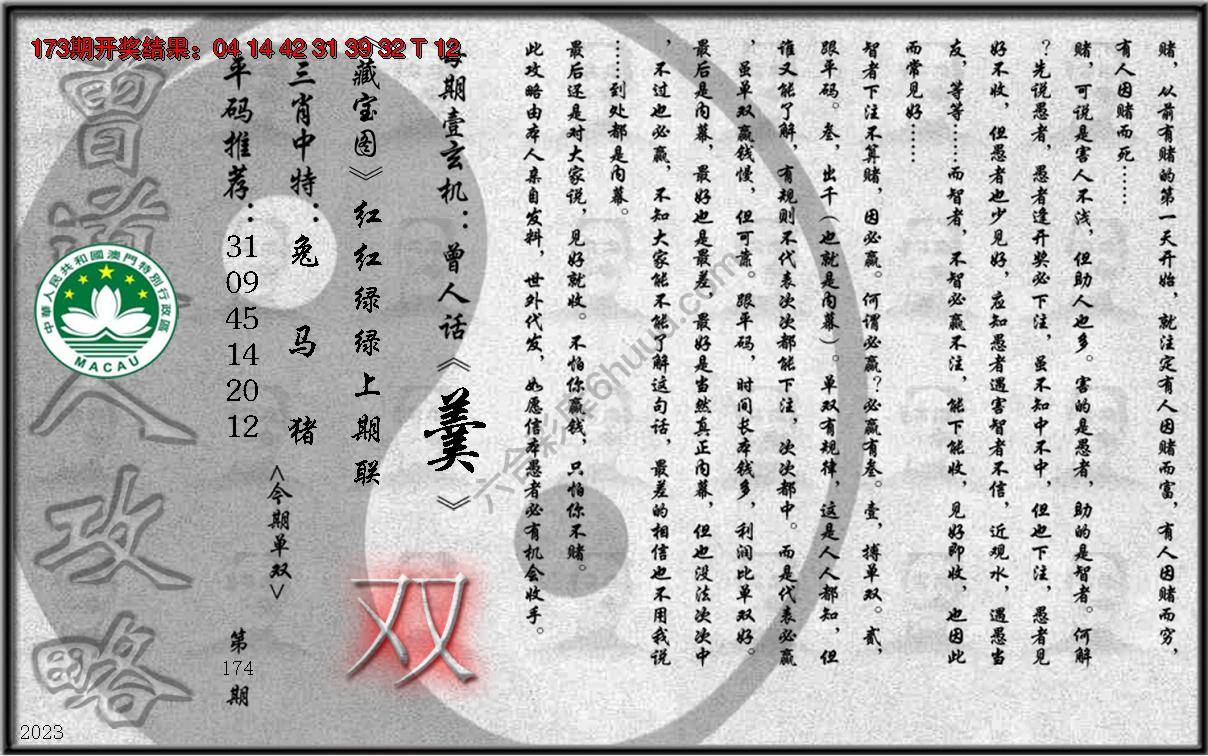 173期开奖结果：04 14 42 31 39 32 T 12
赌，从前有赌的第一天开始，就注定有人因赌而富，有人因赌而穷，
有人因赌而死……
赌，可说是害人不浅，但助人也多。害的是愚者，助的是智者。何解
？先说愚者，愚者逢开奖必下注，虽不知中不中，但也下注，愚者见
好不收，但愚者也少见好，应知愚者遇害智者不信，近观水，遇愚当
友，等等……而智者，不智必赢不注，能下能收，见好即收，也因此
而常见好……
智者下注不算赌，因必赢。何谓必赢？必赢有叁。壹，搏单双。贰，
跟平码。叁，出千（也就是内幕）。单双有规律，这是人人都知，但
谁又能了解，有规则不代表次次都能下注，次次都中。而是代表必赢
，虽单双赢钱慢，但可靠。跟平码，时间长本钱多，利润比单双好。
最后是内幕，最好也是最差，最好是当然真正内幕，但也没法次次中
，不过也必赢，不知大家能不能了解这句话，最差的相信也不用我说
……到处都是内幕。
最后还是对大家说，见好就收。不怕你赢钱，只怕你不赌。
此攻略由本人亲自发料，世外代发，如愿信本愚者必有机会收手。
每期壹玄机：曾人话《羹》
《藏宝图》红红绿绿上期联
三肖中特：兔 马 猪
平码推荐：31 09 45 14 20 12
<今期单双>
双
第174期
曾道人攻略
中華人民共和國澳門特別行政區
MACAU
六合彩库6huu.com
2023